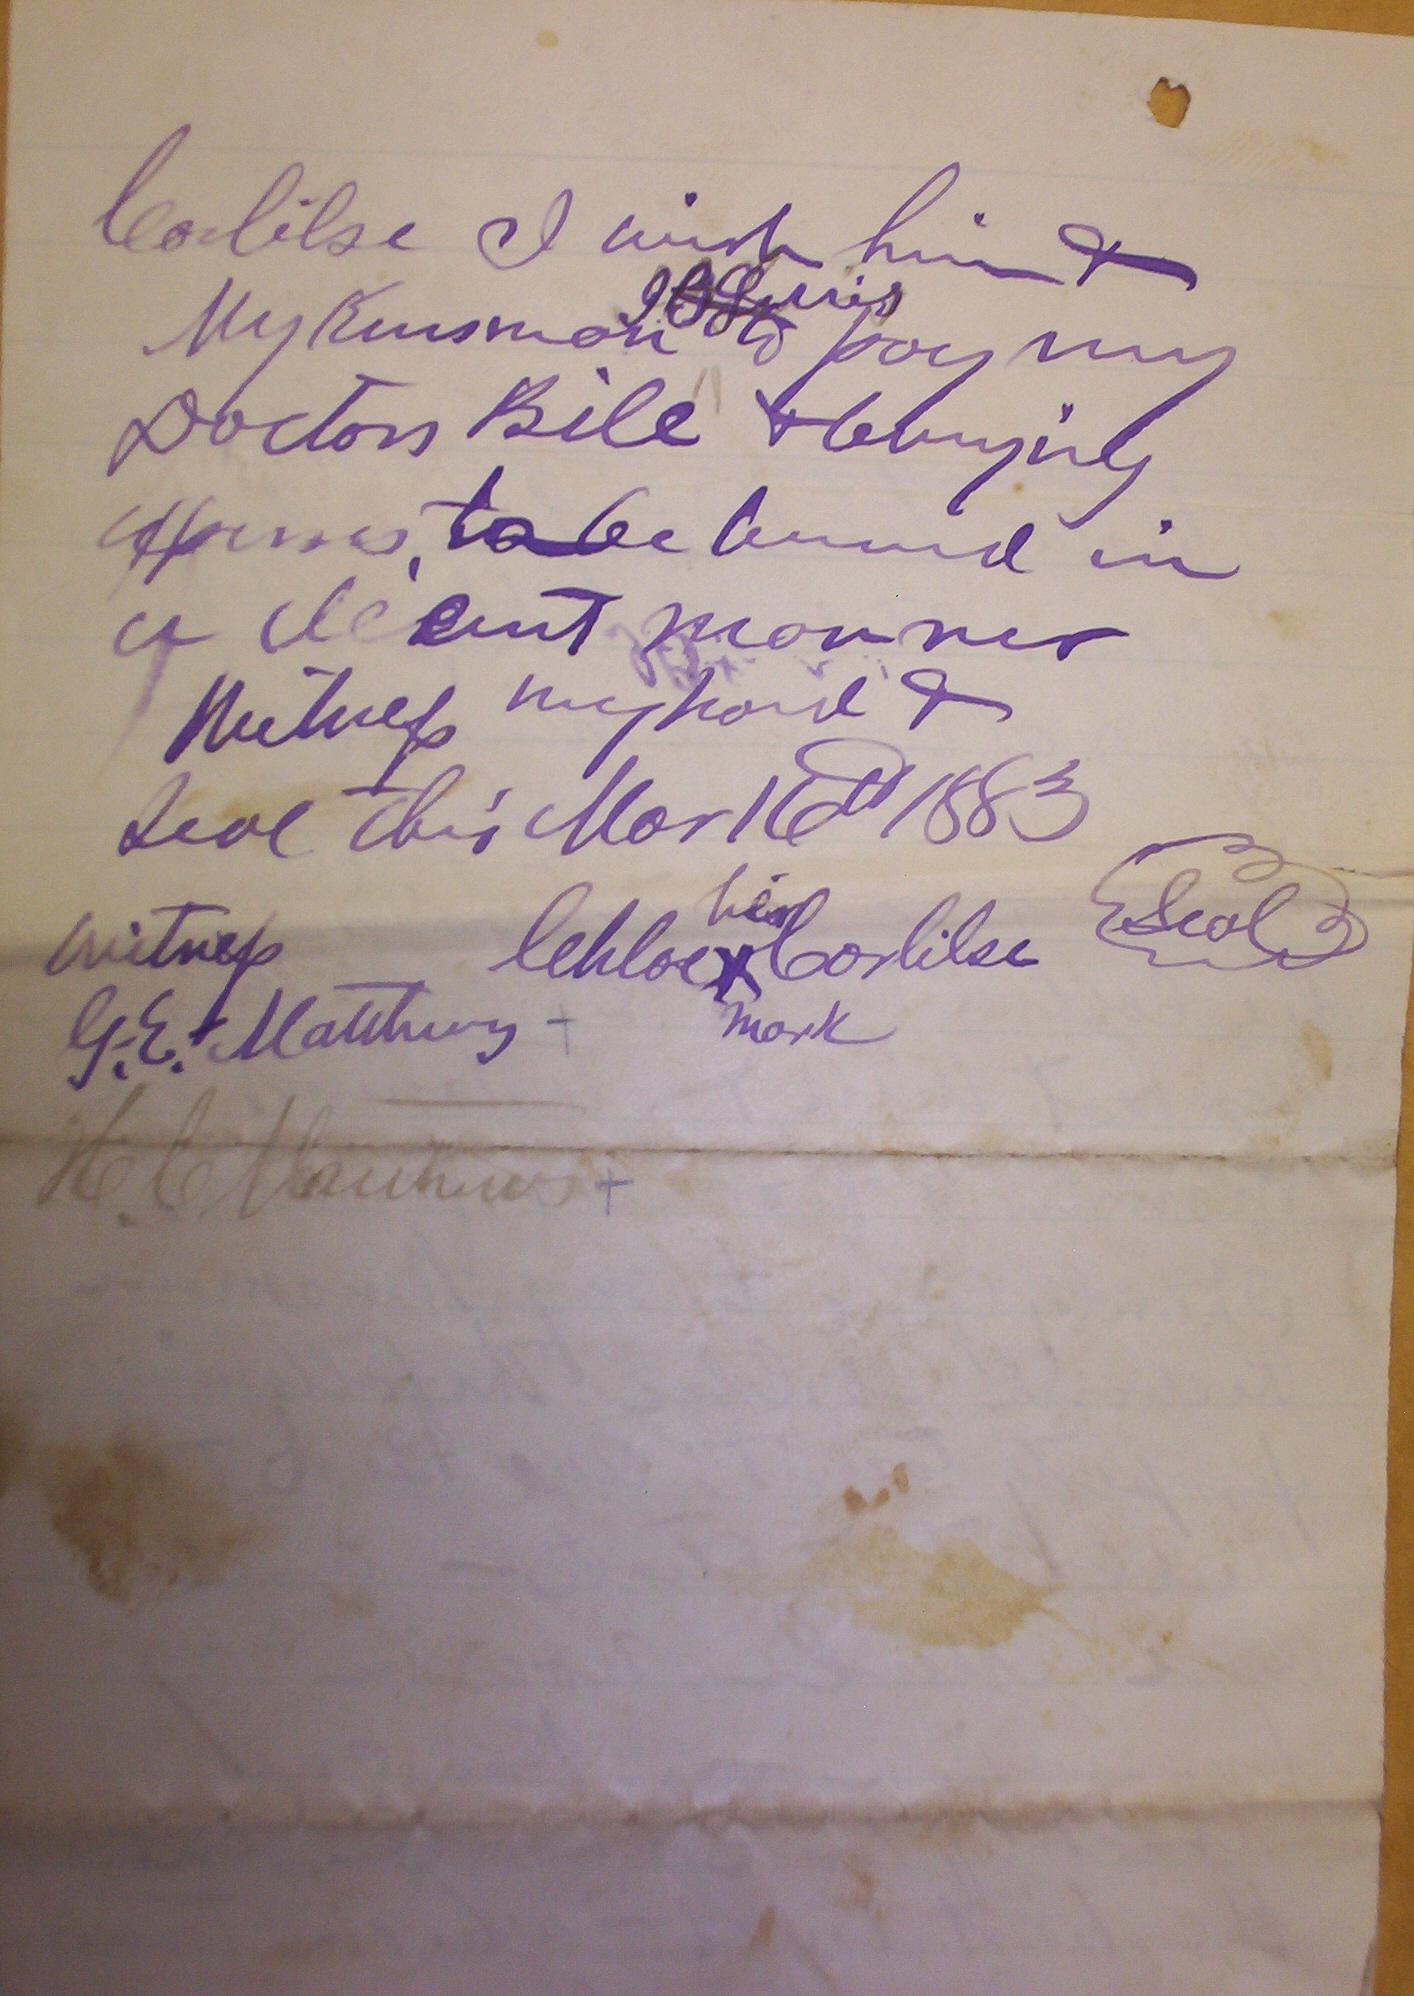 Carlilse I wish him &
My Kinsman to pay my
Doctors Bill & burying
to be buried in
a decent manner
Witness my hand &
Seal this Mar 16th 1883
her
Witness Chloe X Carlilse Seal
mark
G. E. Matthews +
H. C. Matthews +